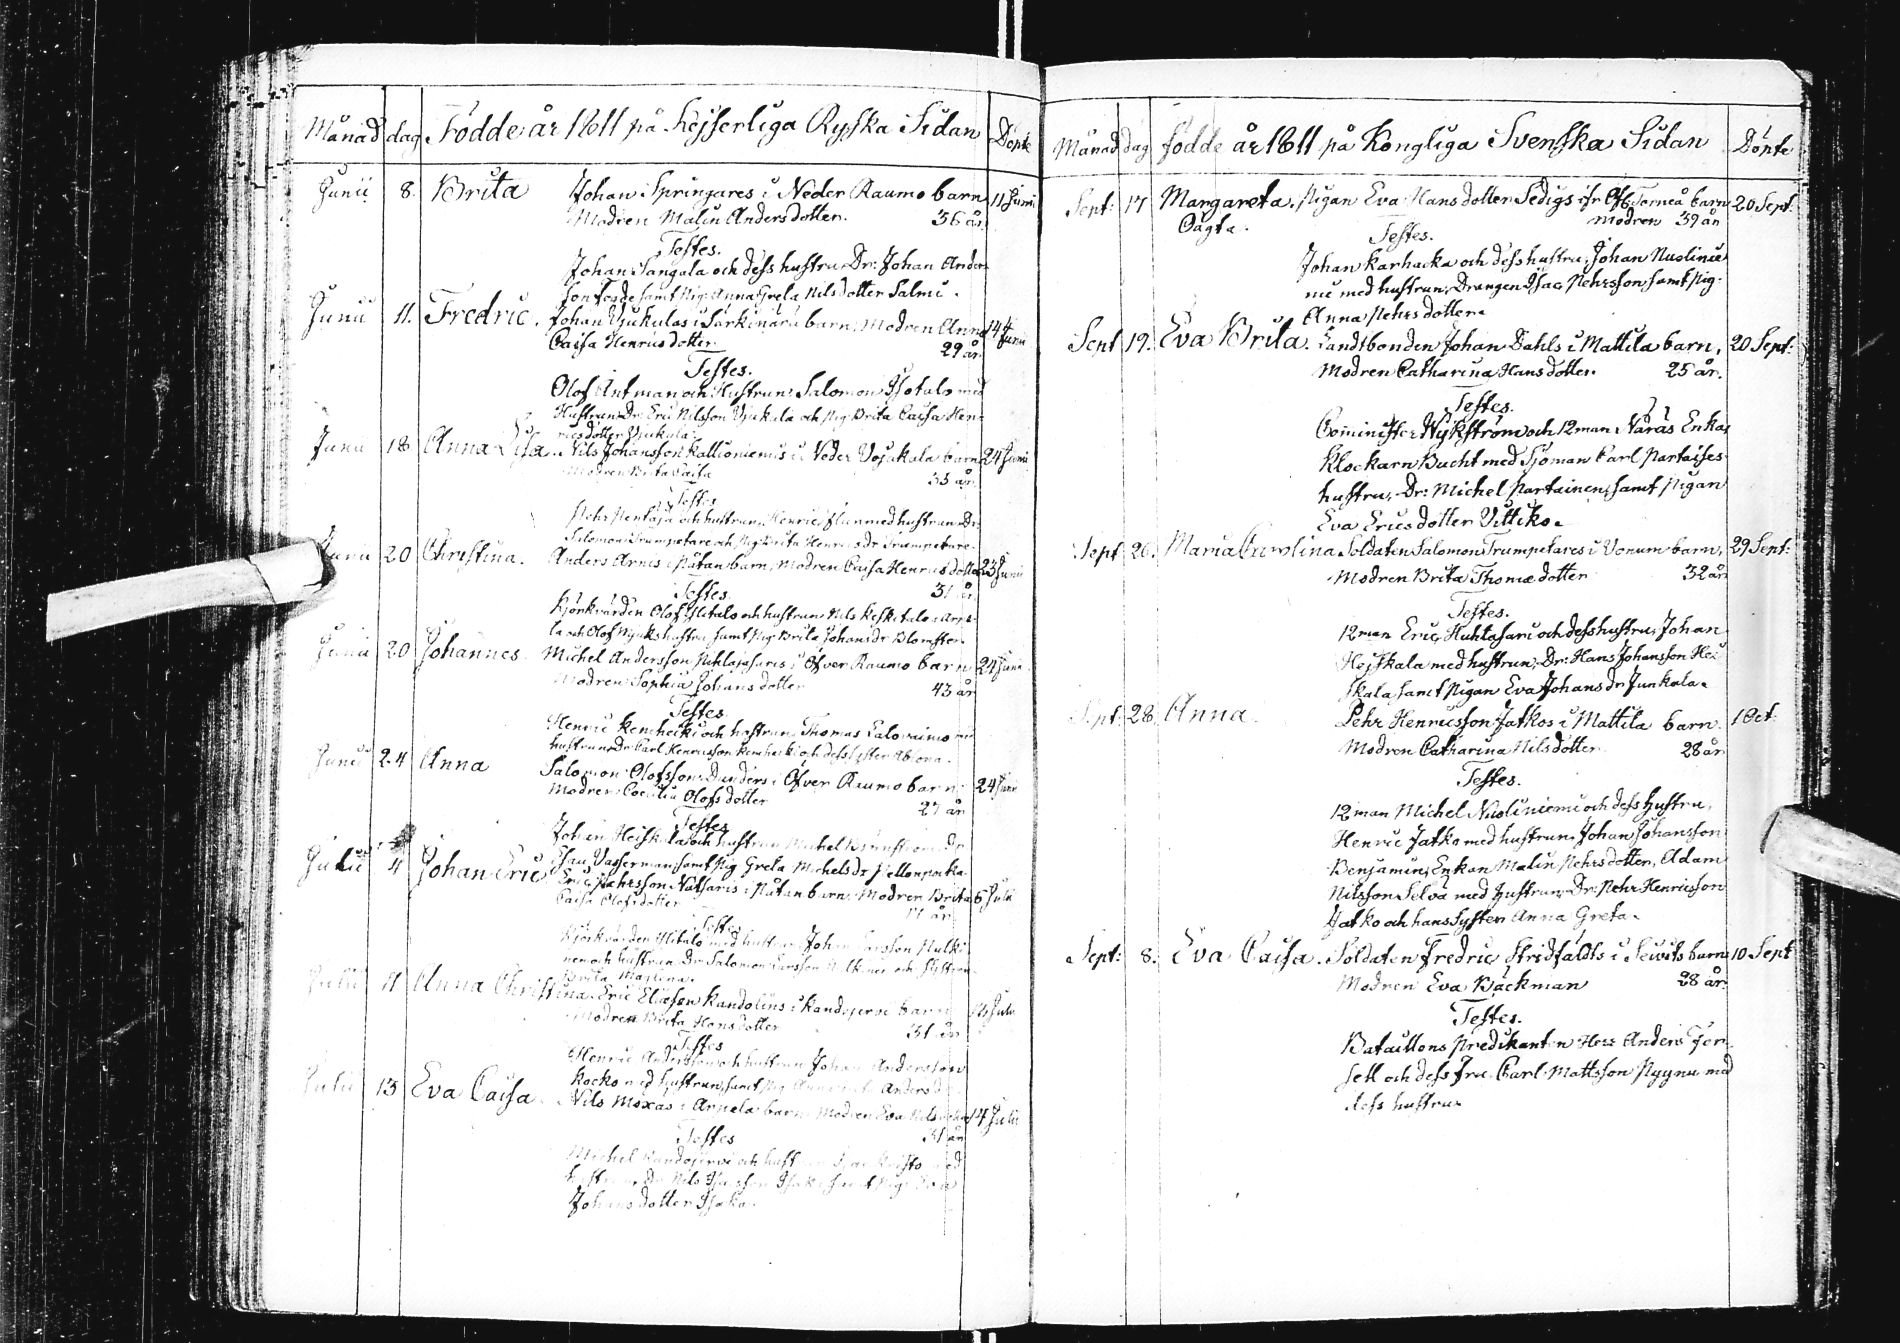 Månad dag Födde år 1811 på Kejserliga Ryska Sidan Döpte
Junii 8. Brita Johan Springares i Neder Raumo barn 11 Junii
Modren Malin Andersdotter. 36 år.
Testes.
Johan Sangala och dess hustru, Dr: Johan Anders
son samt Pig: Anna Greta Nilsdotter Salmi.
Junii 11. Fredric. Johan Vjukulas i Särkinärä barn, Modren Anna 14 Junii
Caisa Henricsdotter. 29 år.
Testes.
Olof Antman och Hustrun, Salomon Isotalo med
Hustrun, Dr: Eric Nilsson Vjukula och Pig: Brita Caisa Hen-
ricsdotter Vjukula.
Junii 18 Anna Lisa. Nils Johansson Kallioniemis i Neder Vojakala barn 24 Junii
Modren Brita Caisa 35 år.
Testes
och hustrun, Henric med hustrun Dr:
Salomon Trumpetare och Pig: Brita Henricsdr Trumpetare.
Junii 20 Christina. Anders Arnis i Pätan barn, Modren Caisa Henricsdotter 23 Junii
Testes. 31 år
Kjörkvärden Olof Ylitalo och hustrun, Nils Keskitalo i Arpe-
la och Olof hustru, samt Pig: Brita Johansdr Blomster.
Junii 20 Johannes. Michel Andersson Puhlajasaris i Öfver Raumo barn 24 Junii
Modren Sophia Johansdotter 43 år
Testes
Henric och hustrun, Thomas med
hustrun, Dr: Carl Henricsson och dess syster
Junii 24 Anna Salomon Olofsson Dunders i Öfver Raumo barn 24 Junii
Modren Cecilia Olofsdotter 27 år
Testes
Johan Heiskala och hustrun, Michel
Esau Vasserman, samt Pig: Greta Michelsdr
Julii 4 Johan Eric Eric Pehrsson Natsaris i Pätan barn, Modren Brita 6 Julii
Caisa Olofsdotter år
Testes
Kjörkvärden Ylitalo med hustrun, Johan Larsson Pulki
nen och hustrun, Dr: Salomon Larsson och Systren
Brita
Julii Anna Christina. Eric Eliæson Kandolins i Kandojervi barn Julii
Modren Brita Hansdotter 31 år
Testes
Henric Andersson och hustrun, Johan Andersson
Kocko med hustrun, samt Pig:
Julii 13 Eva Caisa. Nils Moxas i Arpela barn, Modren Eva Nilsdotter 14 Julii
Testes 31 år
Michel Kandojervi och hustrun, med
hustrun, Dr: Nils samt Pig:
Johansdotter
Månad dag födde år 1811 på Kongliga Svenska Sidan Döpte
Sept: 17 Margareta. Pigan Eva Hansdotter Sedigs ifr. Öfv. Torneå barn 20 Sept:
Oägta. Modren 39 år
Testes.
Johan Karhacka och dess hustru, Johan Nuolinie
mi med hustrun, Drängen Isac Pehrsson, samt Pig:
Anna Pehrsdotter.
Sept 19. Eva Brita. Landtbonden Johan Dahls i Mattila barn, 20 Sept:
Modren Catharina Hansdotter. 25 år.
Testes.
Comminister Wykström och 12man Naras Enka,
Klockarn Bucht med Sjöman Carl Partaises
hustru, Dr: Michel Partainen, samt Pigan
Eva Ericsdotter Uttiko.
Sept 26. Maria Carolina Soldaten Salomon Trumpetares i Vonum barn, 29 Sept:
Modren Brita Thomædotter 32 år
Testes.
12man Eric Huhtasari och dess hustru, Johan
Hejskala med hustrun, Dr: Hans Johansson Hei
skala samt Pigan Eva Johansdr Junkala.
Sept: 28 Anna. Pehr Henricsson Jatkos i Mattila barn 1 Oct:
Modren Catharina Nilsdotter 28 år
Testes.
12man Michel Nuoliniemi och dess hustru,
Henric Jatko med hustrun, Johan Johansson
Benjamin, Enkan Malin Pehrsdotter, Adam
Nilsson Selvä med hustrun, Dr: Pehr Henricsson
Jatko och hans Syster Anna Greta.
Sept: 8. Eva Caisa. Soldaten Fredric Stridfäldts i Seivits barn 10 Sept
Modren Eva Bäckman 28 år.
Testes.
Bataillons Predikanten Herr Anders For-
sell och dess fru, Carl Mattsson Nygnu med
dess hustru.